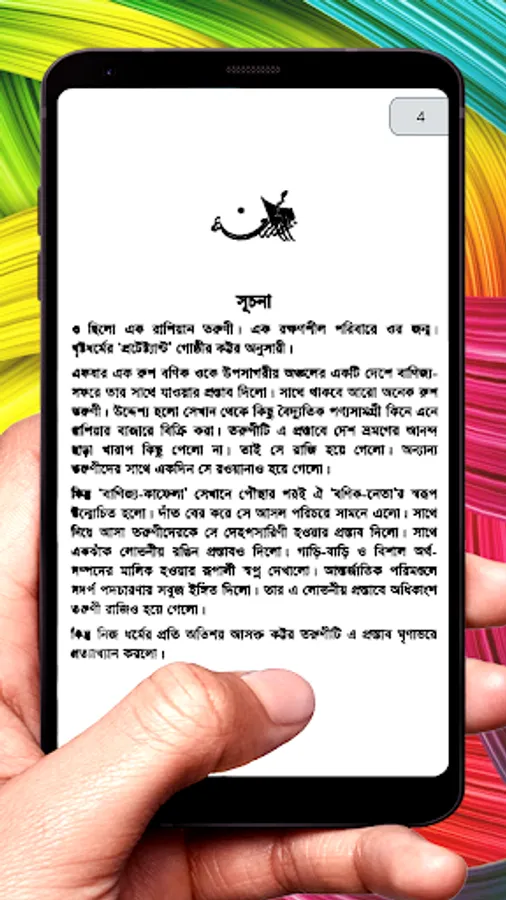 4
সূচনা
ও ছিলো এক রাশিয়ান তরুণী। এক রক্ষণশীল পরিবারে ওর জন্ম।
খৃষ্টধর্মের 'প্রটেষ্ট্যান্ট' গোষ্ঠীর কট্টর অনুসারী।
একবার এক রুশ বণিক ওকে উপসাগরীয় অঞ্চলের একটি দেশে বাণিজ্য-
সফরে তার সাথে যাওয়ার প্রস্তাব দিলো। সাথে থাকবে আরো অনেক রুশ
তরুণী। উদ্দেশ্য হলো সেখান থেকে কিছু বৈদ্যুতিক পণ্যসামগ্রী কিনে এনে
রাশিয়ার বাজারে বিক্রি করা। তরুণীটি এ প্রস্তাবে দেশ ভ্রমণের আনন্দ
ছাড়া খারাপ কিছু পেলো না। তাই সে রাজি হয়ে গেলো। অন্যান্য
তরুণীদের সাথে একদিন সে রওয়ানাও হয়ে গেলো।
কিন্তু 'বাণিজ্য-কাফেলা' সেখানে পৌঁছার পরই ঐ 'বণিক-নেতা'র স্বরূপ
উন্মোচিত হলো। দাঁত বের করে সে আসল পরিচয়ে সামনে এলো। সাথে
নিয়ে আসা তরুণীদেরকে সে দেহপসারিণী হওয়ার প্রস্তাব দিলো। সাথে
একঝাঁক লোভনীয় রঙিন প্রস্তাবও দিলো। গাড়ি-বাড়ি ও বিশাল অর্থ-
সম্পদের মালিক হওয়ার রূপালী স্বপ্ন দেখালো। আন্তর্জাতিক পরিমণ্ডলে
সদর্প পদচারণার সবুজ ইঙ্গিত দিলো। তার এ লোভনীয় প্রস্তাবে অধিকাংশ
তরুণী রাজিও হয়ে গেলো।
কিন্তু নিজ ধর্মের প্রতি অতিশয় আসক্ত কট্টর তরুণীটি এ প্রস্তাব ঘৃণাভরে
প্রত্যাখ্যান করলো।